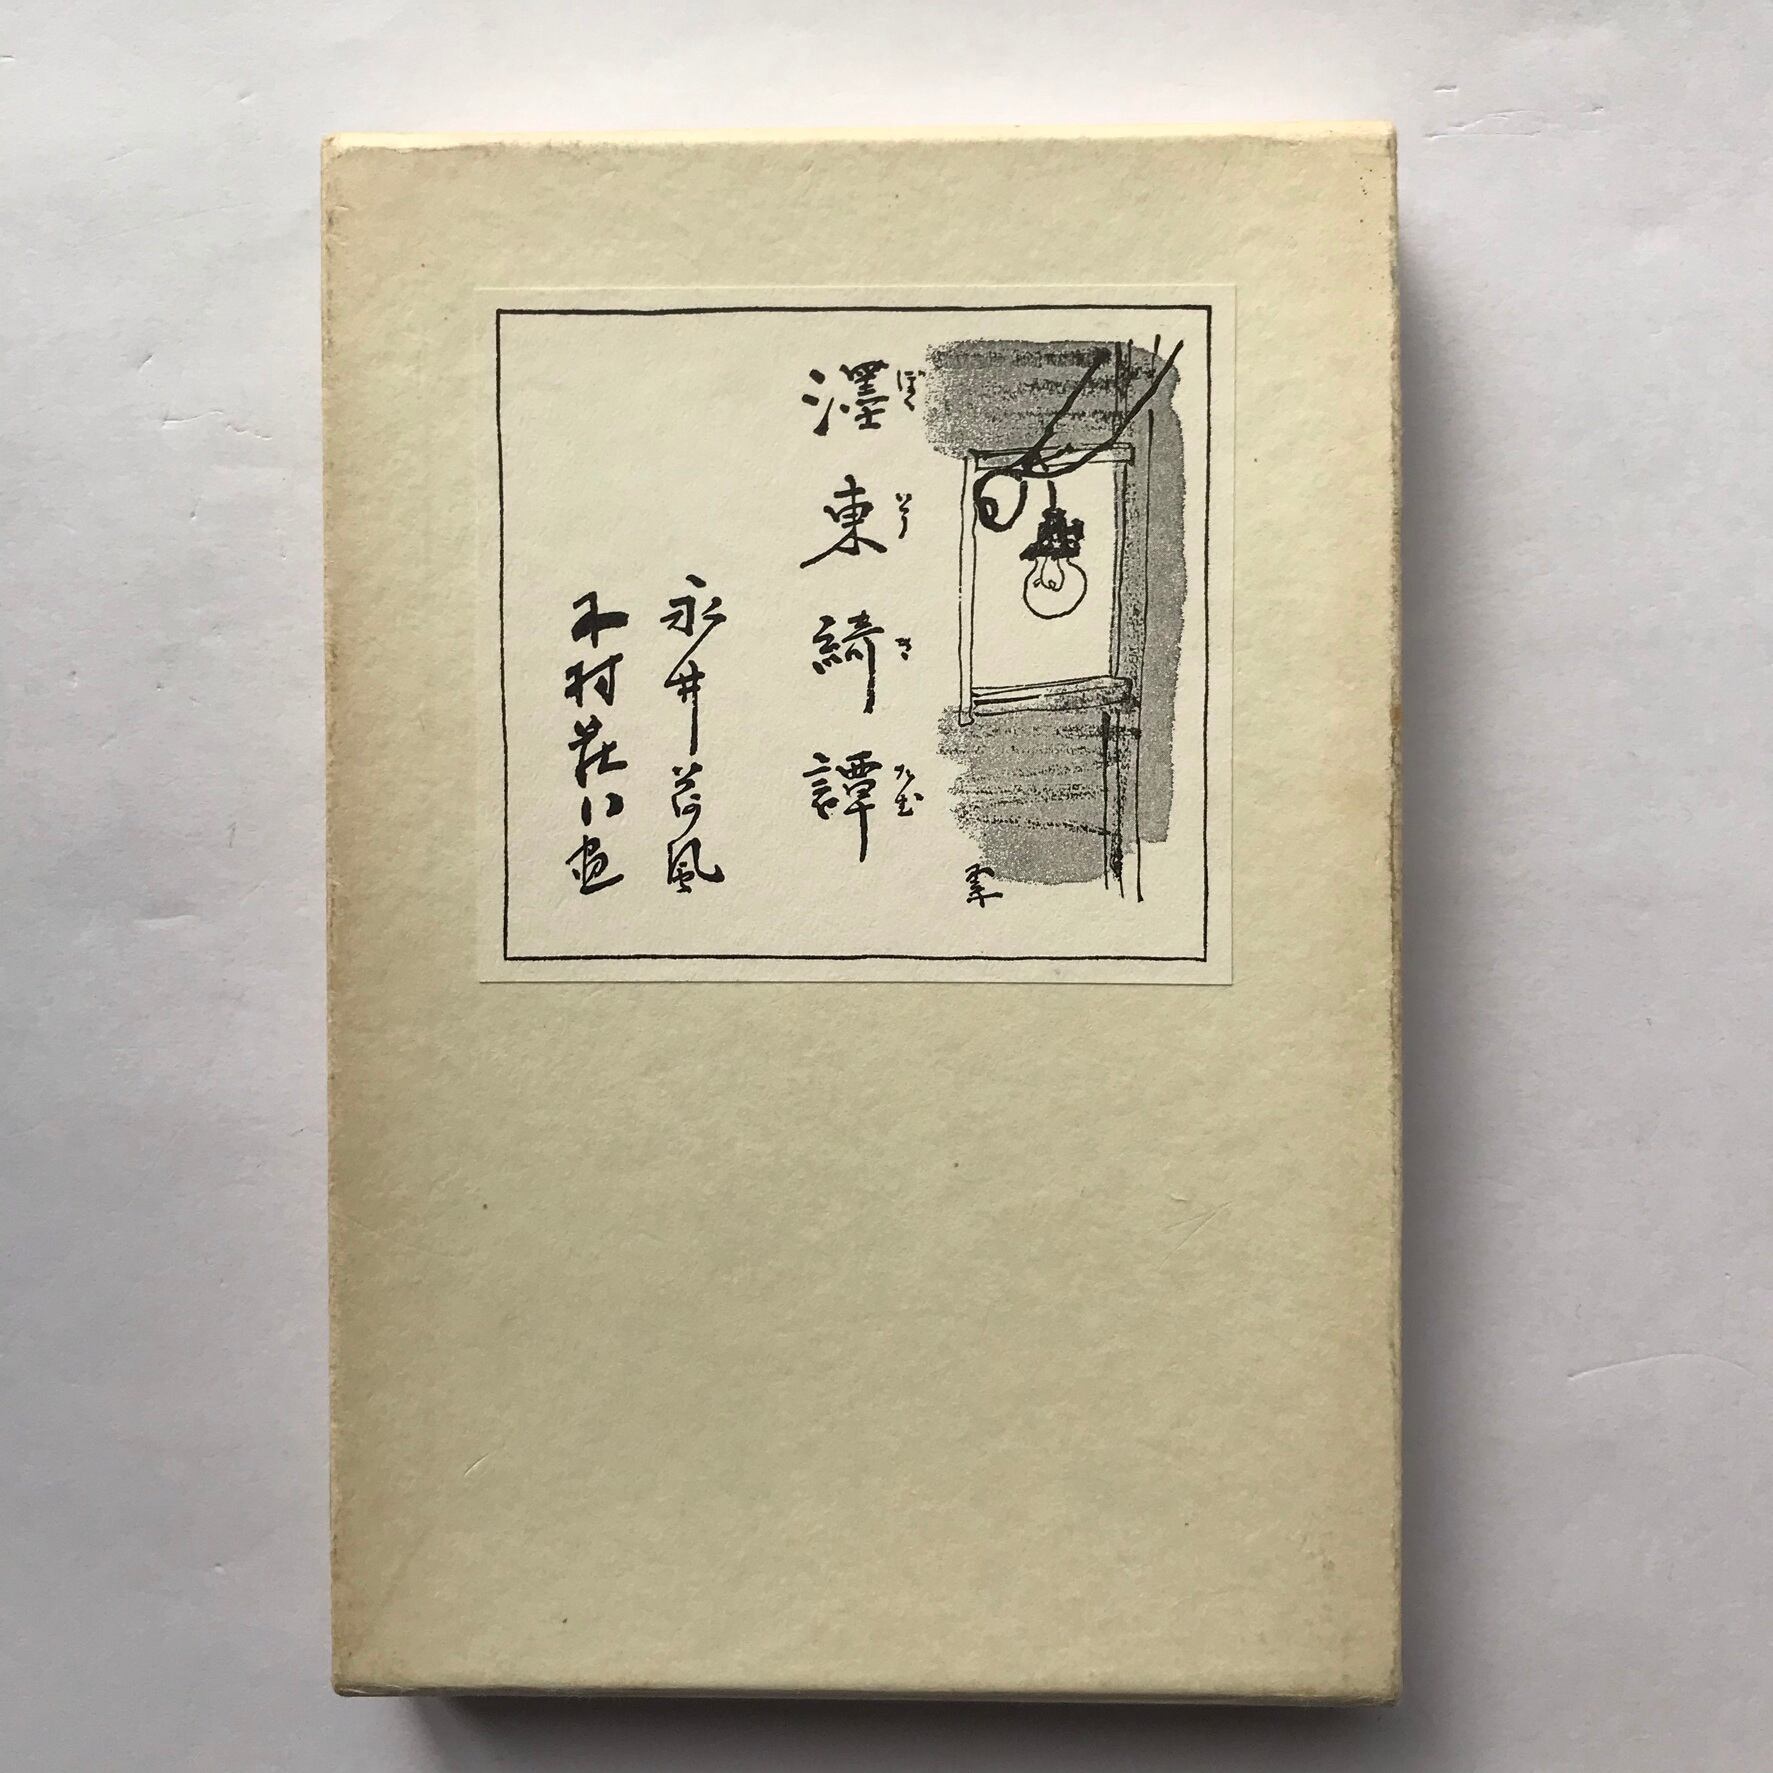 濹東綺譚
ぼくとうきだむ
永井荷風
木村荘八画